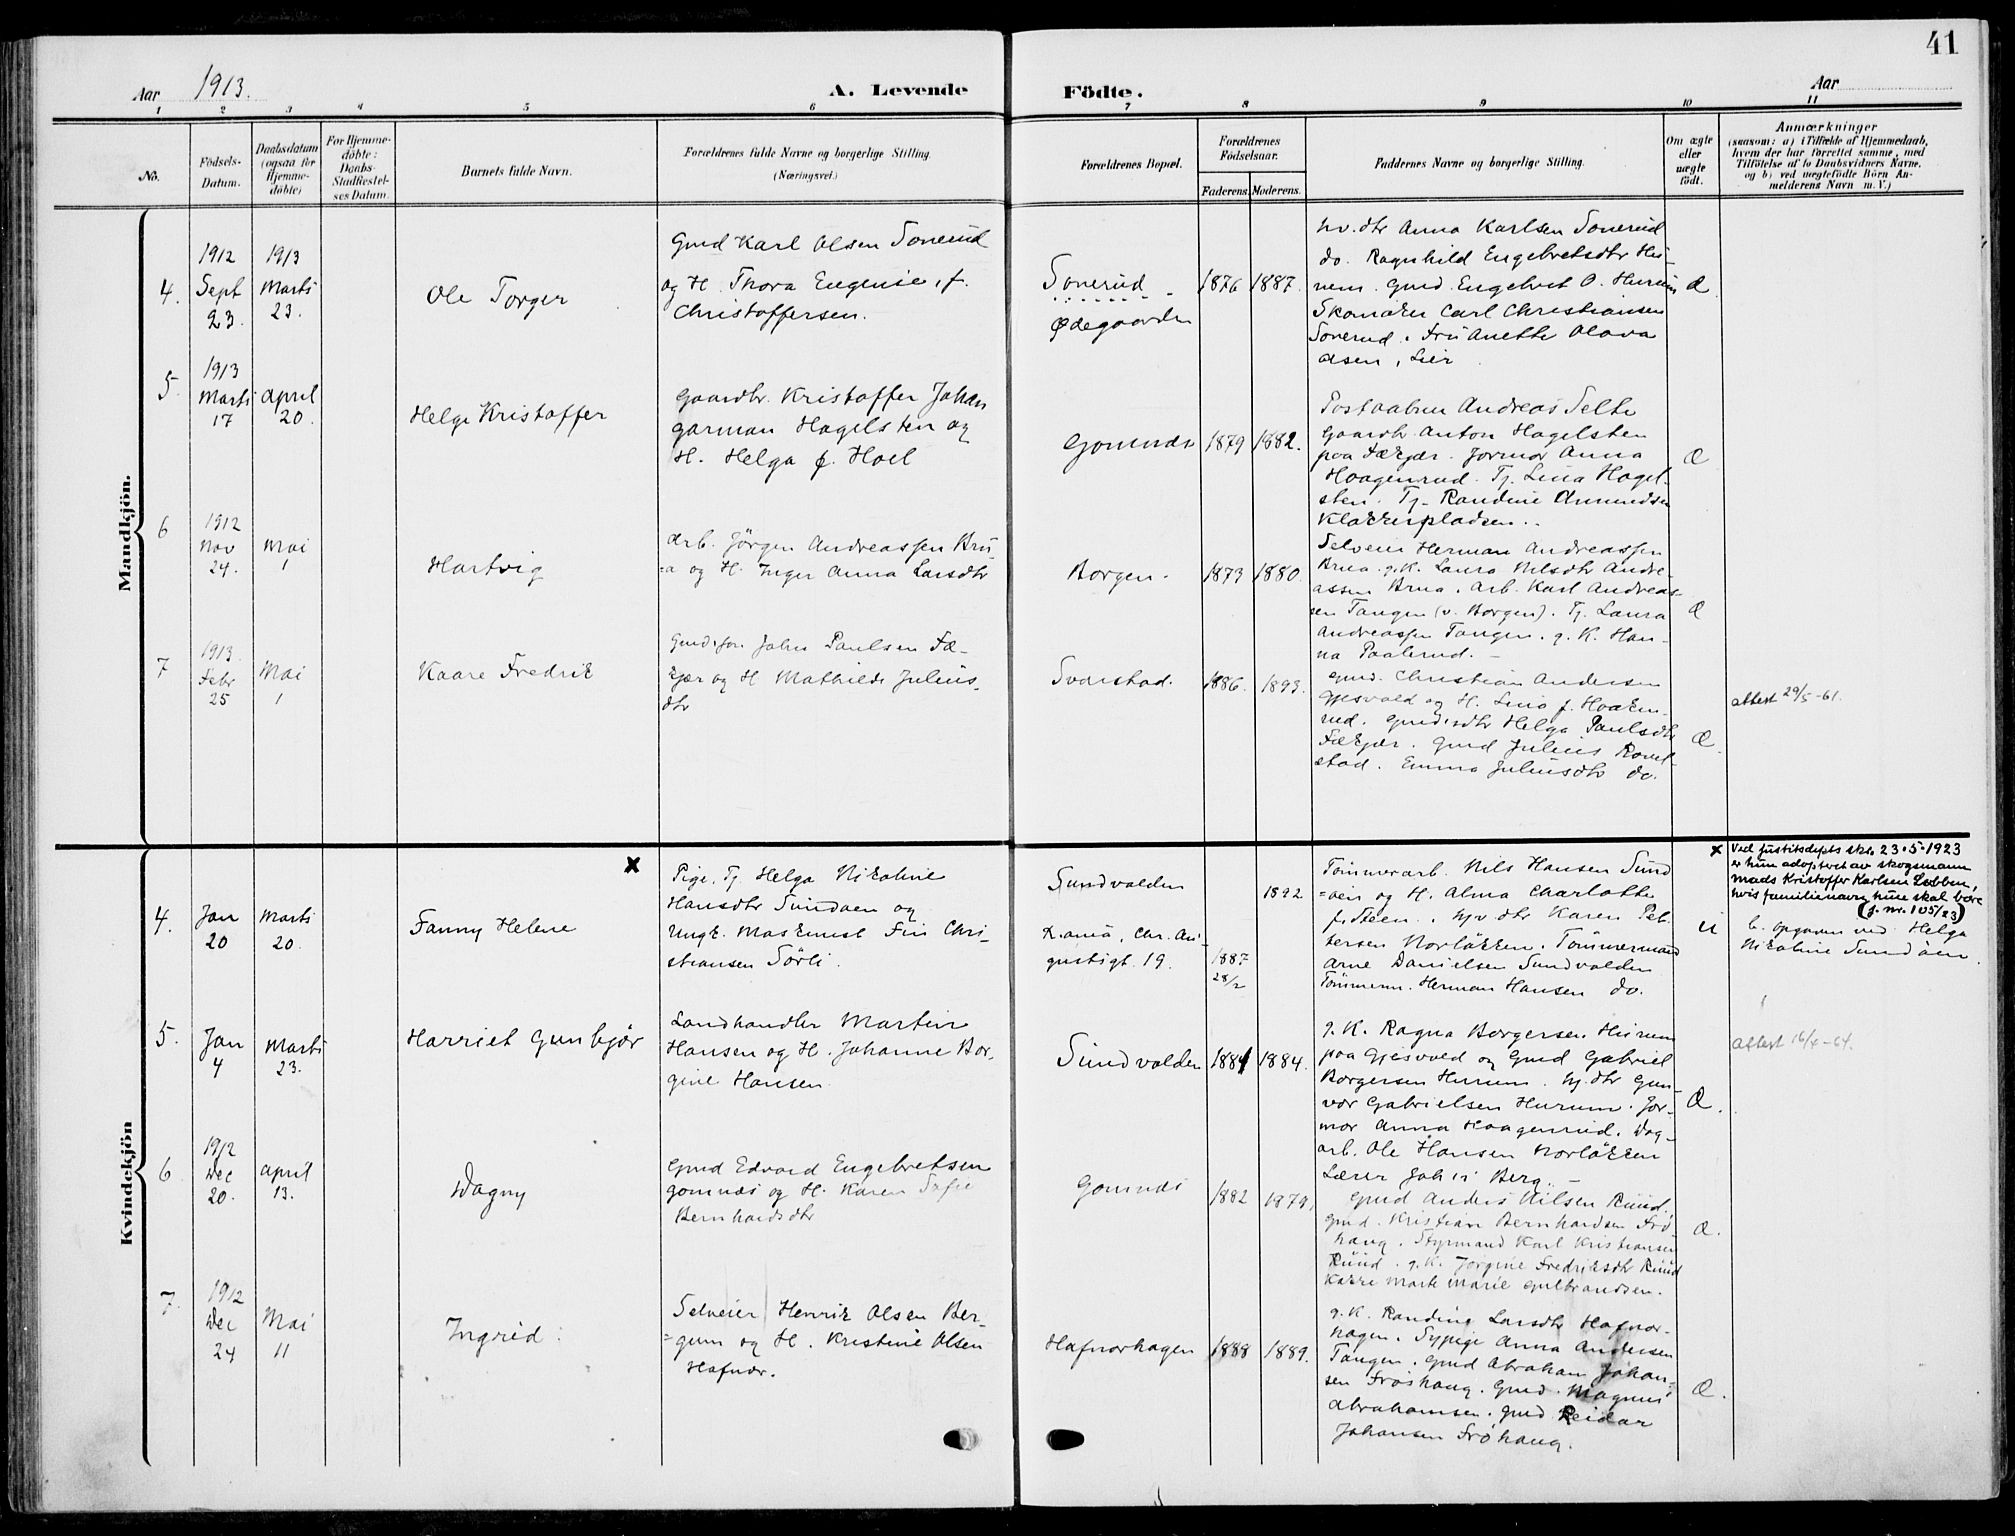 41
Aar 1913.
A. Levende Födte.
Aar
1 2 3 4 5 6 7 8 9 10 11
No.
Födsels-
Datum.
Daabsdatum
(ogsaa for
Hjemme-
döbte)
For Hjemme-
döbte:
Daabs-
Stadfæstel-
ses Datum.
Barnets fulde Navn.
Forældrenes fulde Navne og borgerlige Stilling.
(Næringsvei.)
Forældrenes Bopæl.
Forældrenes
Födselsaar.
Faderens.
Moderens.
Faddernes Navne og borgerlige Stilling.
Om ægte
eller
uægte
födt.
Anmærkninger
(saasom: a) i Tilfælde af Hjemmedaab,
hvem der har forrettet samme, med
Tilföielse af to Daabsvidners Navne,
og b) ved uægtefödte Börn An-
melderens Navn m. V.)
Mandkjön.
4.
1912
Sept
23.
1913
Marts
23.
Ole Torger
Gmd Karl Olsen Sonerud
og H. Thora Eugenie, f.
Christoffersen.
Sonerud
Ødegaarden
1876
1887.
hv. dtr Anna Karlsen Sonerud
do. Ragnhild Engebretsdtr Hu-
rum. Gmd. Engebret O. Hurum
Skomaker Carl Christiansen
Sonerud. Fru Anette Olava
Olsen, Lier
Æ
5.
1913
Marts
17
April
20.
Helge Kristoffer
Gaardbr. Kristoffer Johan
Garman Hagelsten og
H. Helga f. Hoel
Gomnæs
1879
1882.
Postaabner Andreas Selte
Gaardb. Anton Hagelsten
paa Fækjær. Jormor Anna
Haagenrud. Tj. Lina Hagel-
sten. Tj. Randine Amundsen
Klækkenpladsen.
Æ
6
1912
Nov
24.
Mai
1
Hartvig
Arb. Jörgen Andreassen Bru-
=a og H. Inger Anna Larsdtr
Borgen.
1873
1880.
Selveier Herman Andreassen
Brua. g.K. Laura Nilsdtr Andre-
assen Brua. Arb. Karl Andreas-
sen Tangen (v. Borgen). Tj. Laura
Andreassen Tangen. g. K. Han-
na Paalerud.
Æ
7
1913.
Febr
25
Mai
1
Kaare Fredrik
Gmd.sön John Paulsen Fæ-
kjær og H Mathilde Julius-
dtr
Svarstad.
1886.
1893.
gmd. Christian Andersen
Gjesvold og H. Lina f. Haaken-
rud. Gmd.sdtr Helga Paulsdtr
Fækjær. Gmd Julius Ravel-
stad. Emma Juliusdtr do.
Æ.
attest 29/5-61.
Kvindekjön
4.
Jan
20
Marts
20.
Fanny Helene
x
Pige. Tj Helga Nikoline
Hansdtr Sundöen og
Ungk. Maskinist Finn Chri-
stiansen Sörli.
Sundvolden
Krania, Chr. Au-
gustsgt. 19.
1887
28/2
1892
Tömmerarb. Nils Hansen Sund
=öen og H. Alma Charlotte
f. Steen. hjv. dtr Karen Pet-
tersen Norlökken. Tömmermand
Arne Danielsen Sundvolden
Tömmerm. Herman Hansen do.
U
x Ved justitsdepts skr. 23-5-1923
er hun adoptert av skogsmann
Mads Kristoffer Karlsen Løbben,
hvis familienavn hun skal bære
(j. nr. 105/23)
b. opgaven ved Helga
Nikoline Sundöen.
5.
Jan
4
Marts
23.
Harriet Gunbjör
Landhandler Martin
Hansen og H. Johanne Bor-
gine Hansen.
Sundvolden
1881
1884.
g. K. Ragna Borgersen Hurum
paa Gjesvold og Gmd Gabriel
Borgersen Hurum. hj. dtr Gun-
vor Gabrielsen Hurum. Jor-
mor Anna Haagenrud. Dag-
arb. Ole Hansen Norlökken
Lærer Johs Berg.
Æ.
attest 16/4-64.
6
1912
Dec
20.
April
13.
Dagny
Gmd Edvard Engebretsen
Gomnæs og H. Karen Sofie
Bernhardsdtr
Gomnæs
1882
1879.
Gmd Anders Nilsen Ruud.
Gmd. Kristian Bernhardsen Frö
haug. Styrmand Karl Kristiansen
Ruud. g.K. Jörgine Fredriksdtr Ruud
Marie Gulbrandsen.
Æ.
7.
1912
Dec
24
Mai
11
Ingrid
Selveier Henrik Olsen Ber-
=gum og H. Kristine Olsen
Hafnor.
Hafnorhagen
1888
1889.
g.K. Randine Larsdtr Hafnor-
hagen. Sypige Anna Andersen
Tangen. Gmd Abraham Johan-
sen Fröshaug. Gmd. Magnus
Abrahamsen. gmd Reidar
Johansen Fröhaug.
Æ.